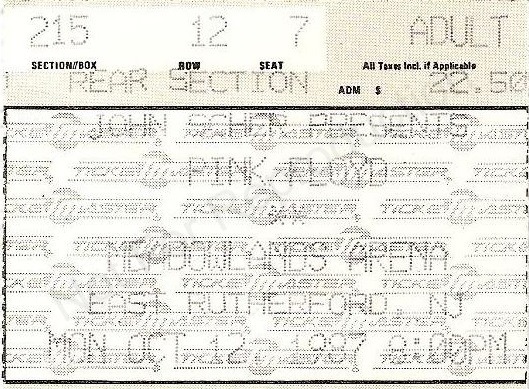 215 12 7 ADULT
SECTION/BOX ROW SEAT All Taxes Incl. if Applicable
REAR SECTION ADM $ 22.50
JOHN SCHER PRESENTS
PINK FLOYD
MEADOWLANDS ARENA
EAST RUTHERFORD, NJ
MON OCT 12, 1987 8:00PM